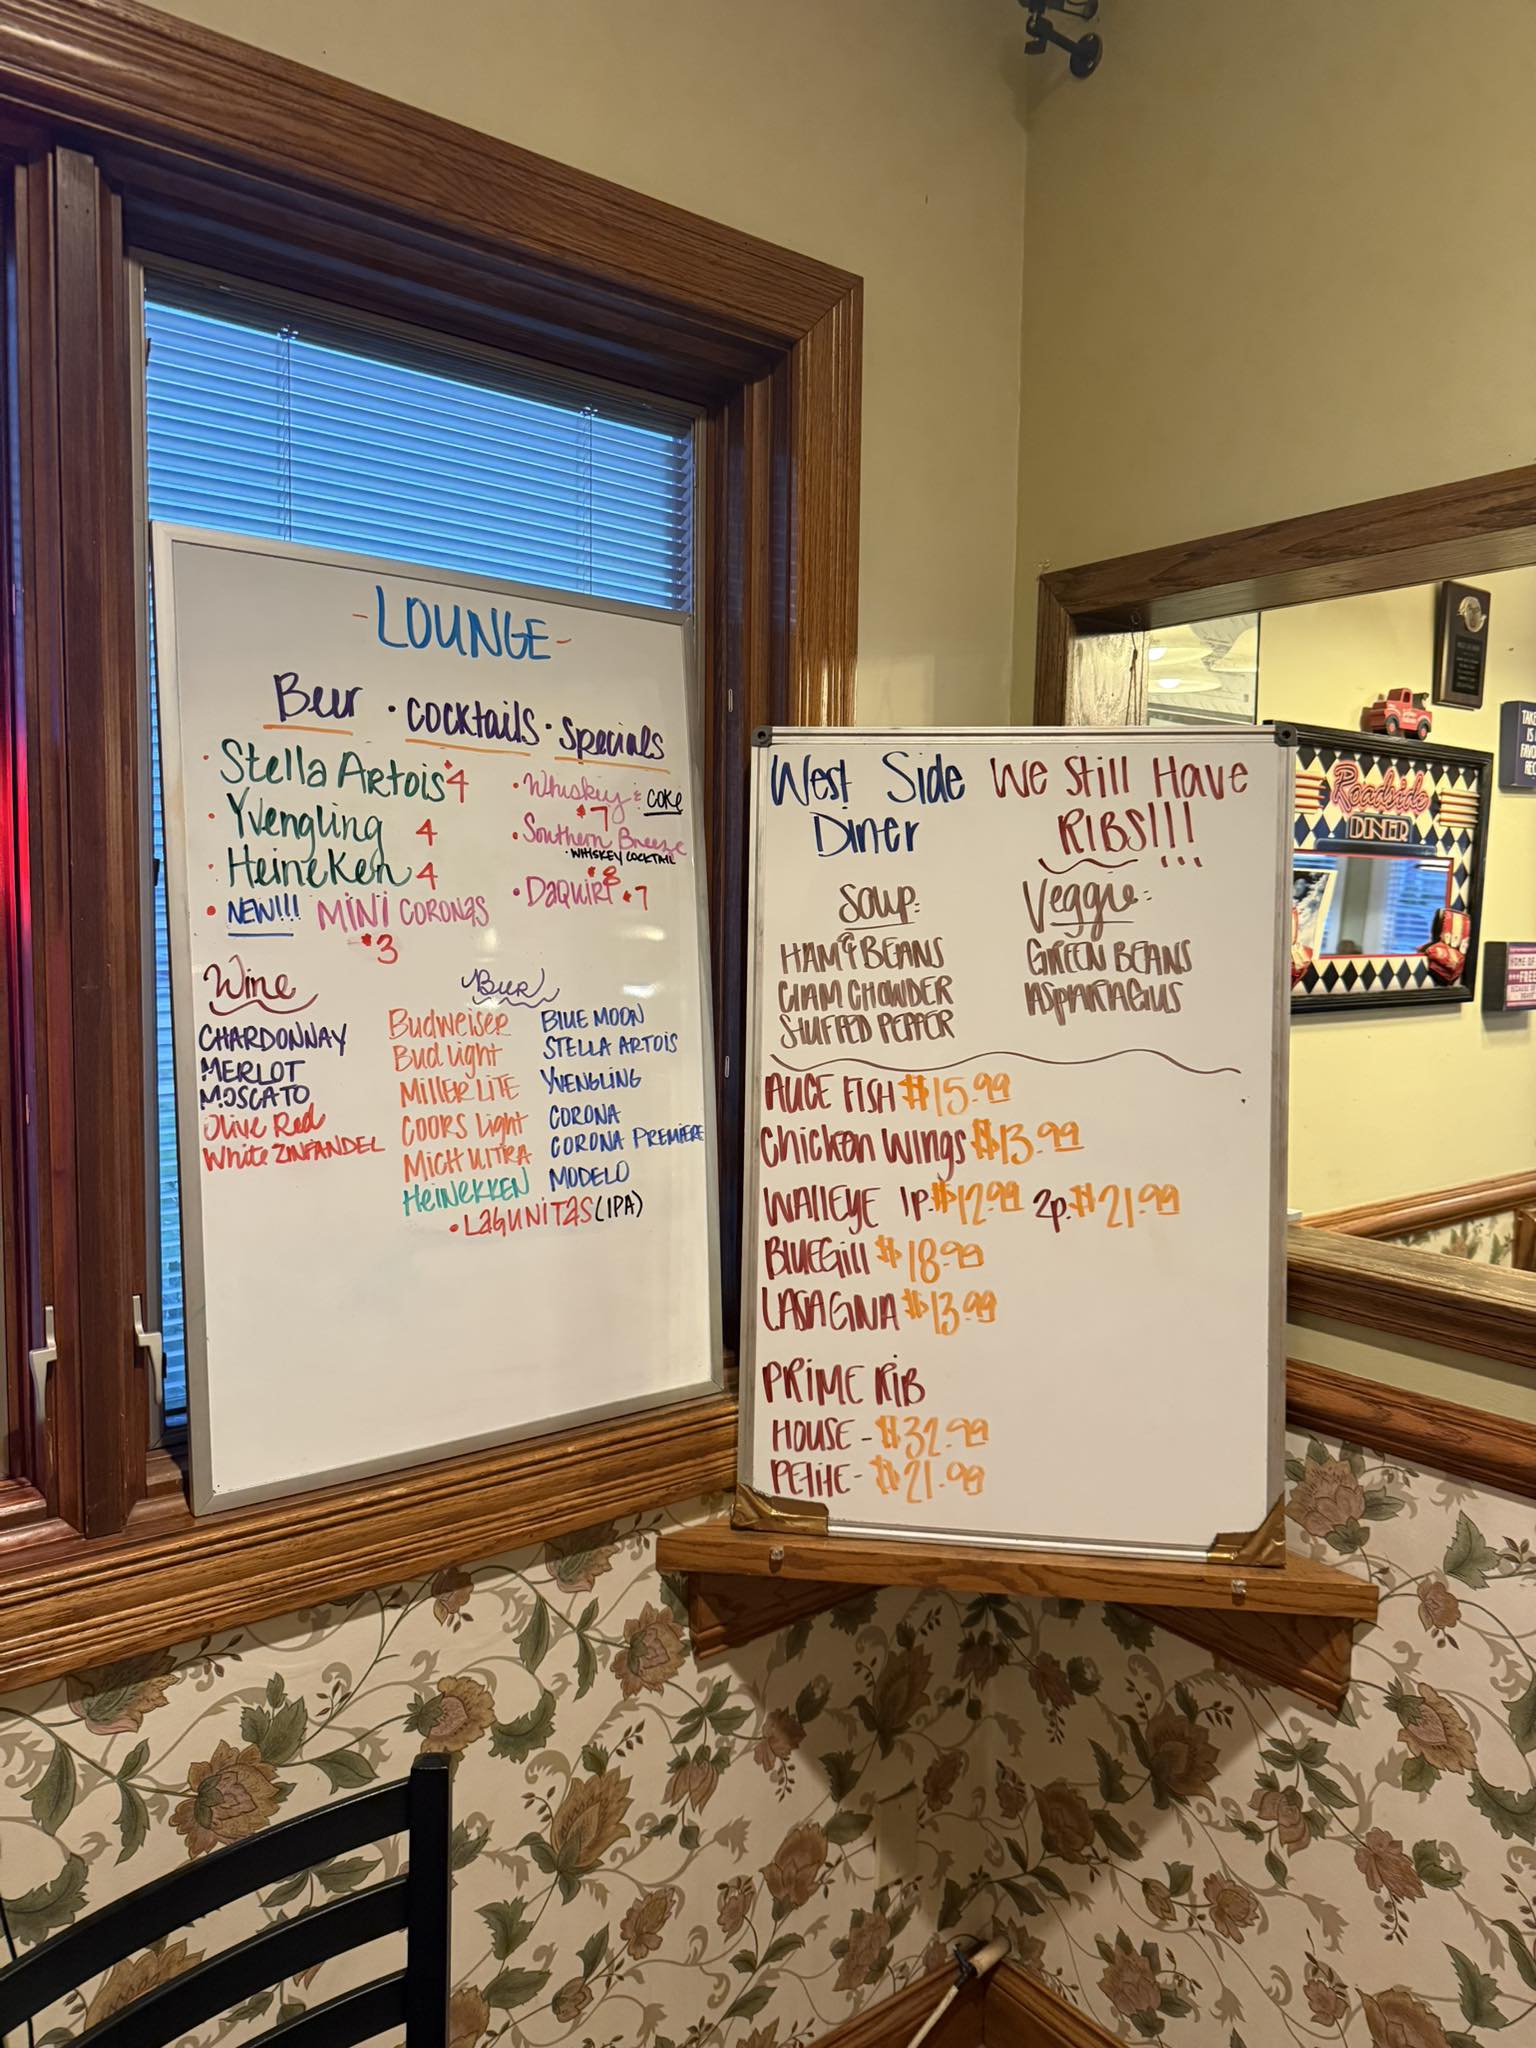 -LOUNGE-
Beer · cocktails · specials
· Stella Artois $4
· Yvengling 4
· Heineken 4
· NEW!!! MINI CORONAS
$3
· Whiskey & COKE
$7
· Southern Breeze
· WHISKEY COCKTAIL
$8
· DAQUIRI $7
Wine
CHARDONNAY
MERLOT
MOSCATO
Olive Red
White ZINFANDEL
Beer
Budweiser
Bud light
MILLER LITE
COORS light
MICH ULTRA
HEINEKKEN
BLUE MOON
STELLA ARTOIS
YVENGLING
CORONA
CORONA PREMIERE
MODELO
· LAGUNITAS (IPA)
West Side
Diner
We Still Have
RIBS!!!
Soup:
HAM & BEANS
CLAM CHOWDER
STUFFED PEPPER
Veggie:
GREEN BEANS
ASPARAGUS
AUCE FISH $15.99
Chicken Wings $13.99
WALLEYE 1p. $12.99 2p. $21.99
BLUEGILL $18.99
LASAGNA $13.99
PRIME RIB
HOUSE - $32.99
PETITE - $21.99
Roadside
DINER